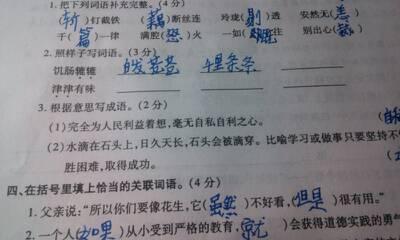 1. 把下列词语补充完整。(4分)
(斩)钉截铁 (藕)断丝连 玲珑(剔)透 安然无(恙)
千(篇)一律 满腔(怒)火 一如(既)往 别出心(裁)
2. 照样子写词语。(3分)
饥肠辘辘 白发苍苍
津津有味
3. 根据意思写成语。(2分)
(1)完全为人民利益着想,毫无自私自利之心。
(2)水滴在石头上,日久天长,石头会被滴穿。比喻学习或做事只要坚持不
胜困难,取得成功。
四、在括号里填上恰当的关联词语。(4分)
1. 父亲说:“所以你们要像花生,它(虽然)不好看,(但是)很有用。”
2. 一个人(如果)从小受到严格的教育,(就)会获得道德实践的勇气